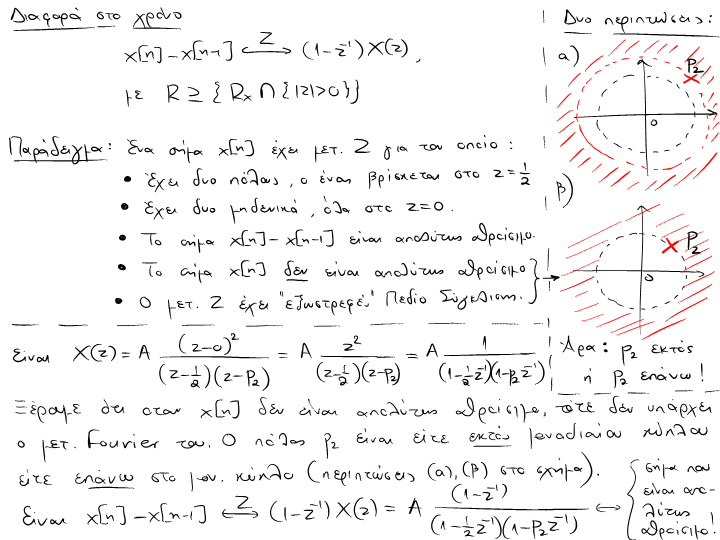 Διαφορά στο χρόνο
x[n] - x[n-1] ⟷ᶻ (1 - z⁻¹) X(z),
με R ≥ { Rx ∩ {|z|>0}}
Παράδειγμα: Ένα σήμα x[n] έχει μετ. Z για τον οποίο :
• Έχει δυο πόλους, ο ένας βρίσκεται στο z = 1/2
• Έχει δυο μηδενικά, όλα στο z=0.
• Το σήμα x[n] - x[n-1] είναι απολύτως αθροίσιμο.
• Το σήμα x[n] δεν είναι απολύτως αθροίσιμο
• Ο μετ. Z έχει "εξωστρεφές" Πεδίο Σύγκλισης.
Δυο περιπτώσεις:
α)
p₂
0
β)
p₂
0
Άρα: p₂ εκτός
ή p₂ επάνω!
Είναι X(z) = A (z-0)² / (z-1/2)(z-p₂) = A z² / (z-1/2)(z-p₂) = A 1 / (1-1/2z⁻¹)(1-p₂z⁻¹)
Ξέρουμε ότι όταν x[n] δεν είναι απολύτως αθροίσιμο, τότε δεν υπάρχει
ο μετ. Fourier του. Ο πόλος p₂ είναι είτε εκτός μοναδιαίου κύκλου
είτε επάνω στο μον. κύκλο (περιπτώσεις (α), (β) στο σχήμα).
Είναι x[n] - x[n-1] ⟷ᶻ (1 - z⁻¹) X(z) = A (1-z⁻¹) / (1-1/2z⁻¹)(1-p₂z⁻¹) ⟷ { σήμα που
είναι απο-
λύτως
αθροίσιμο!